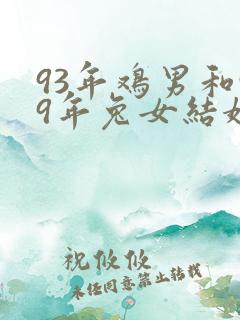 93年鸡男和
9年兔女结
祝攸攸
未经同意禁止转载